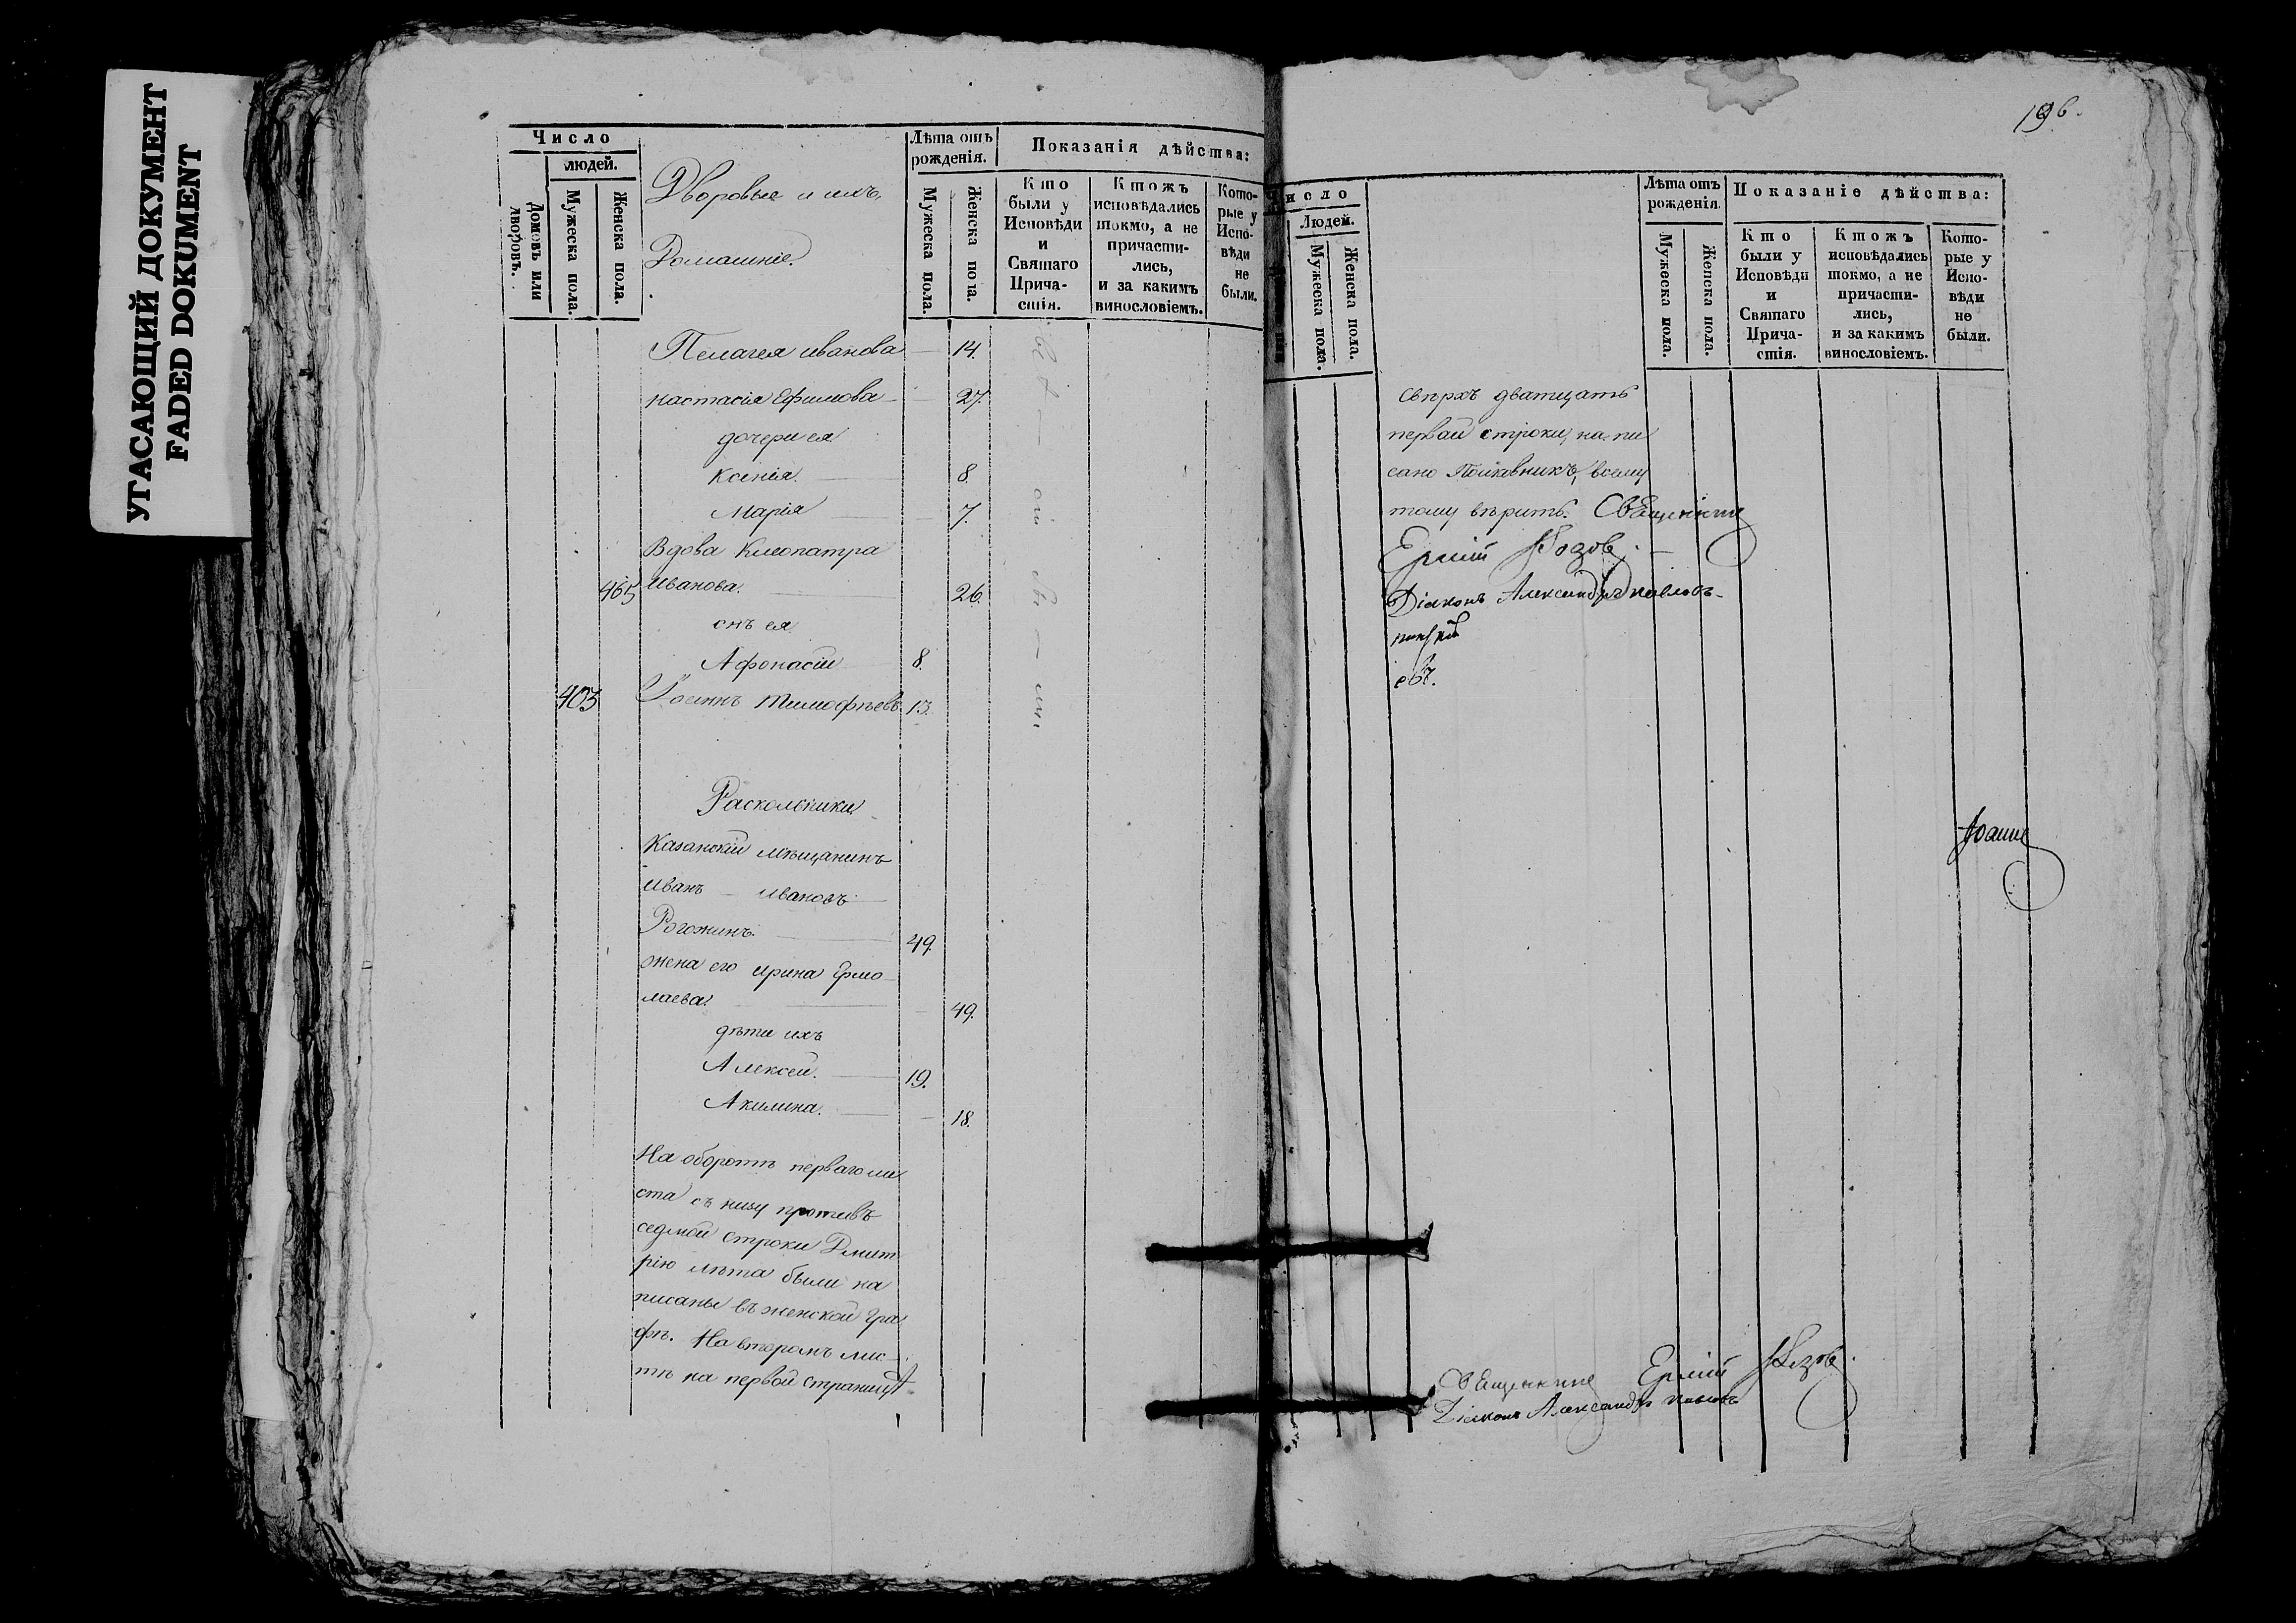 УГАСАЮЩИЙ ДОКУМЕНТ
FADED DOKUMENT
Число
людей.
Домовъ или дворовъ.
Мужеска пола.
Женска пола.
Дворовые и ихъ
Домашніе.
Лѣта отъ
рожденія.
Мужеска пола.
Женска пола.
Показанія дѣйства:
Кто
были у
Исповѣди
и
Святаго
Прича-
стія.
Ктожъ
исповѣдались
токмо, а не
причасти-
лись,
и за какимъ
винословіемъ.
Кото-
рые у
Испо-
вѣди
не
были.
Пелагея иванова 14.
настасія Ефимова 27.
дочери ея
Ксенія. 8.
Марія 7.
Вдова Клеопатра
465 иванова. 26.
снъ ея
Афонасій 8.
403 Тимофѣевъ 13.
Раскольники
Казанскій мѣщанинъ
иванъ ивановъ
Рогожинъ. 49.
жена его ирина Ермо
лаева. 49.
дѣти ихъ
Алексей. 19.
Акилина. 18.
На оборотѣ перваго ли
ста съ низу противъ
седмой строки Дмит
рію лѣта были на
писаны въ женской гра
фѣ. На второмъ лис
тѣ на первой страницѣ
196.
Число
Людей.
Мужеска пола.
Женска пола.
Лѣта отъ
рожденія.
Мужеска пола.
Женска пола.
Показаніе дѣйства:
Кто
были у
Исповѣди
и
Святаго
Прича-
стія.
Ктожъ
исповѣдались
токмо, а не
причасти-
лись,
и за какимъ
винословіемъ.
Кото-
рые у
Испо-
вѣди
не
были.
Свѣрхъ дватцать
первой строки, на пи
сано Полковникъ, всему
тому вѣрить. Священникъ
Ермій
Діаконъ Александръ павловъ
Іоанн
Священникъ Ермій
Діаконъ Александръ павловъ